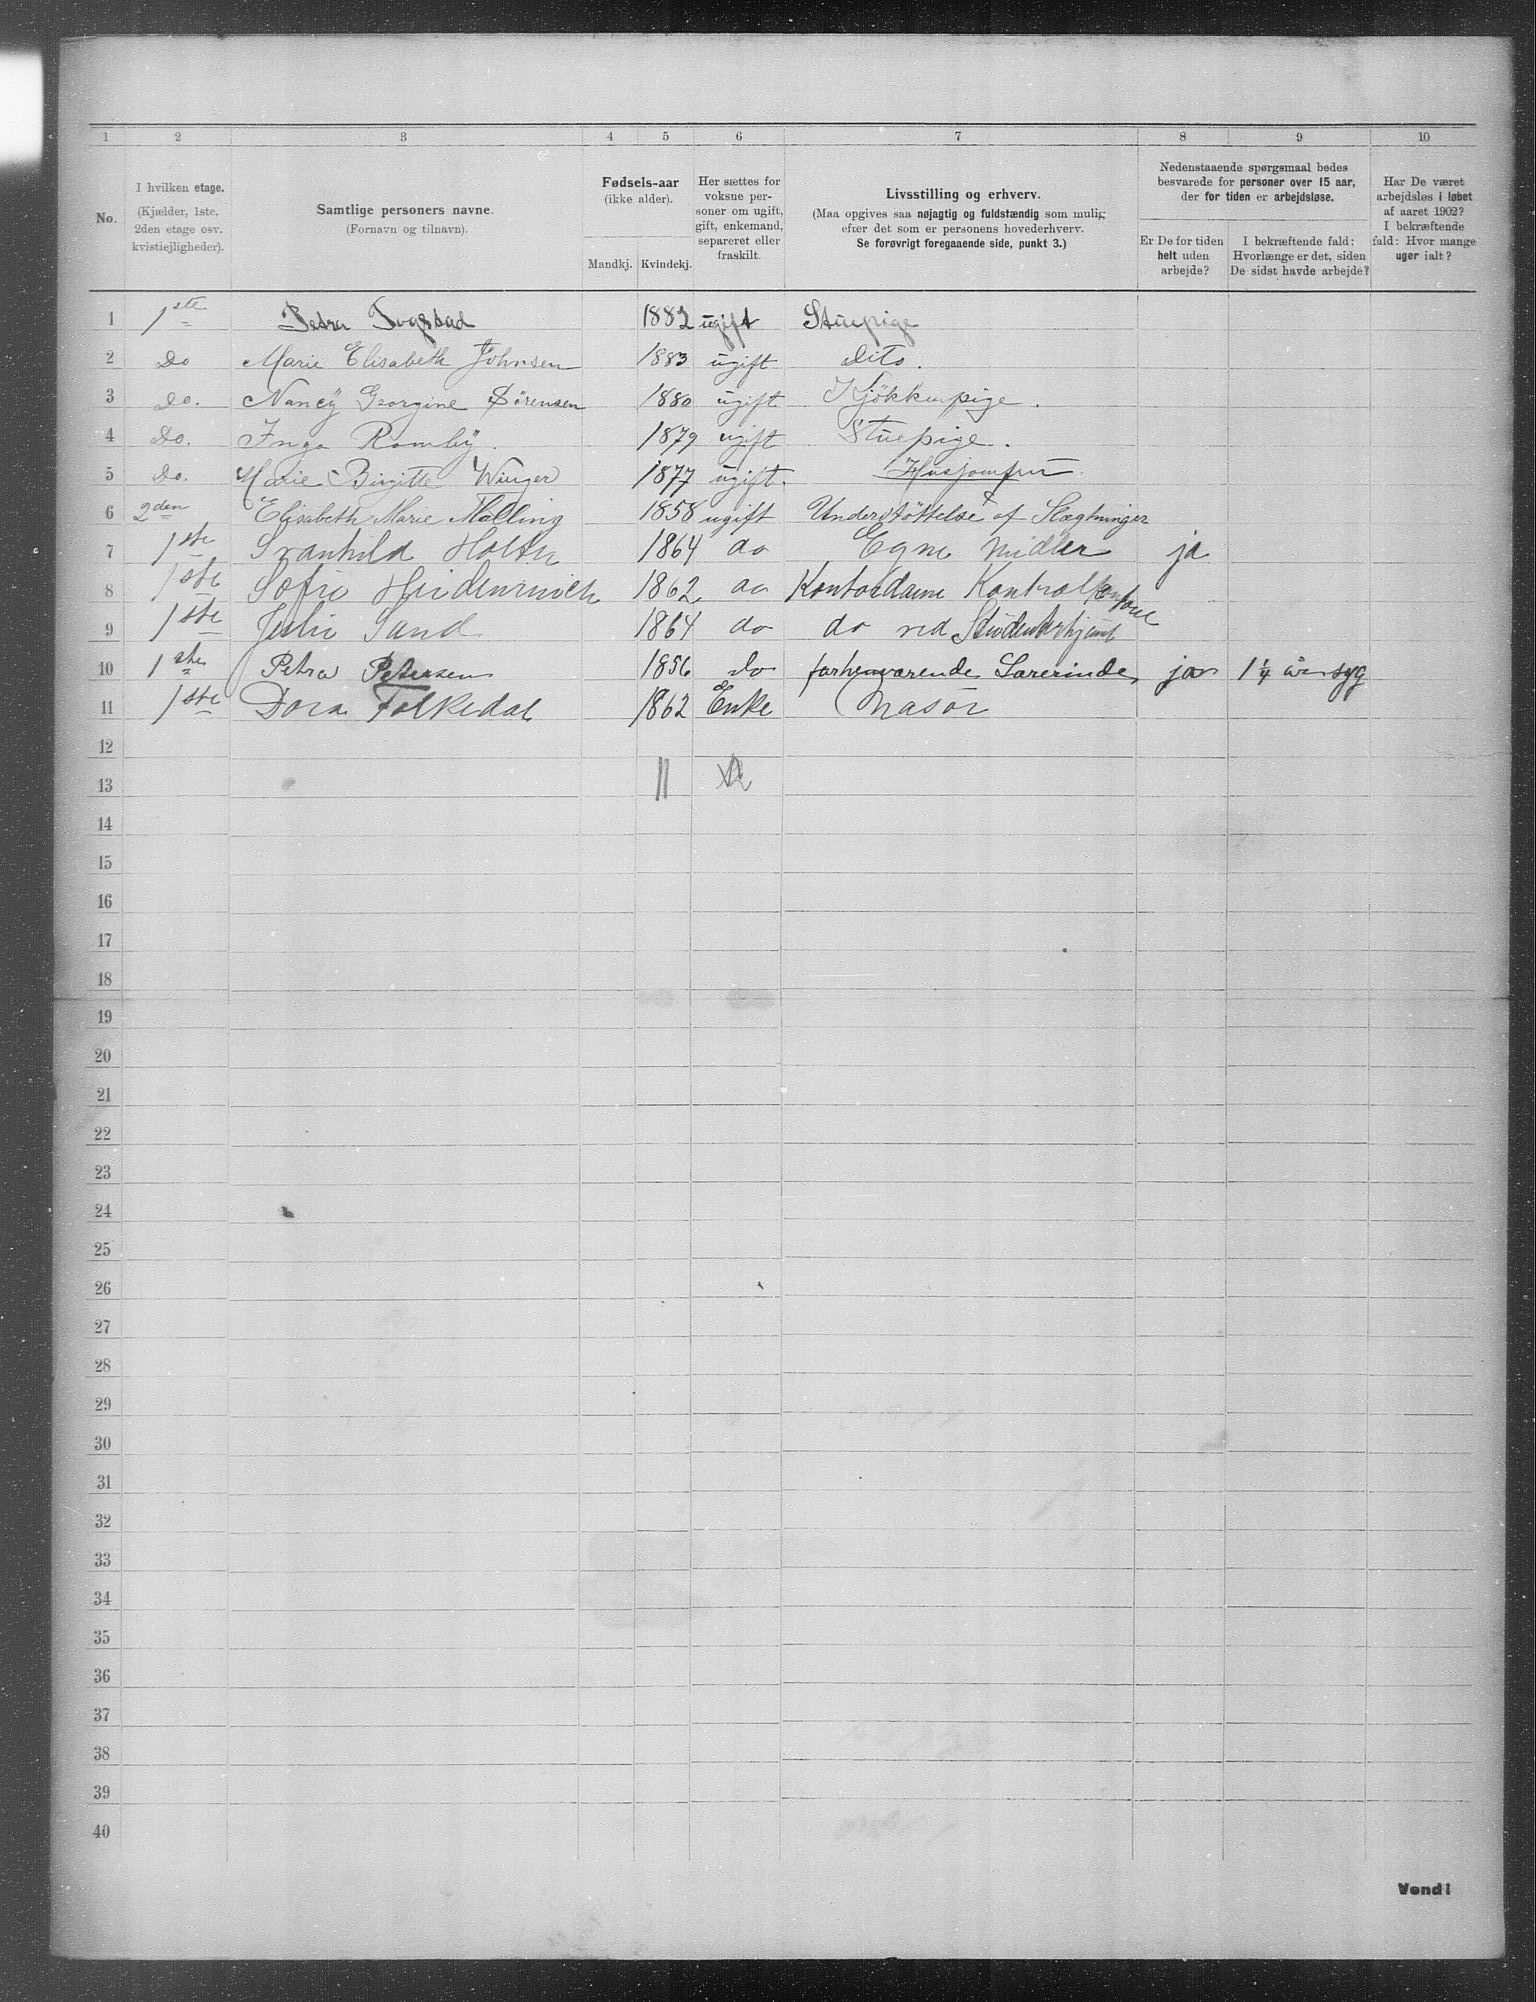 1 2 3 4 5 6 7 8 9 10
No.
I hvilken etage.
(Kjælder, 1ste,
2den etage osv.
kvistiejligheder).
Samtlige personers navne.
(Fornavn og tilnavn).
Fødsels-aar
(ikke alder).
Mandkj. Kvindekj.
Her sættes for
voksne per-
soner om ugift,
gift, enkemand,
separeret eller
fraskilt.
Livsstilling og erhverv.
(Maa opgives saa nøjagtig og fuldstændig som mulig
efter det som er personens hovederhverv.
Se forøvrigt foregaaende side, punkt 3.)
Nedenstaaende spørgsmaal bedes
besvarede for personer over 15 aar,
der for tiden er arbejdsløse.
Er De for tiden
helt uden
arbejde?
I bekræftende fald:
Hvorlænge er det, siden
De sidst havde arbejde?
Har De været
arbejdsløs i løbet
af aaret 1902?
I bekræftende
fald: Hvor mange
uger ialt?
1 1ste Petra Fogstad 1882 ugift Stuepige
2 Do Marie Elisabeth Johnsen 1883 ugift dito.
3 Do. Nancÿ Georgine Sørensen 1880 ugift Kjökkenpige.
4 Do. Inga Rambÿ. 1879 ugift Stuepige.
5 Do. Marie Birgitte Winger 1877 ugift. Husjomfru.
6 2den Elisabeth Marie Malling 1858 ugift Understöttelse af Slægtninger
7 1ste Svanhild Holth 1864 do Egne Midler ja
8 1ste Sofie Heidenreich 1862 do Kontordame Kontrolkontore
9 1ste Sand 1864 do do ved Studenterhjemt
10 1ste Petra Petersen 1856 do forhenværende Lærerinde, ja 1 1/4 år syg
11 1ste Dora Folkedal 1862 Enke Masør
12
13 11
14
15
16
17
18
19
20
21
22
23
24
25
26
27
28
29
30
31
32
33
34
35
36
37
38
39
40
Vend!